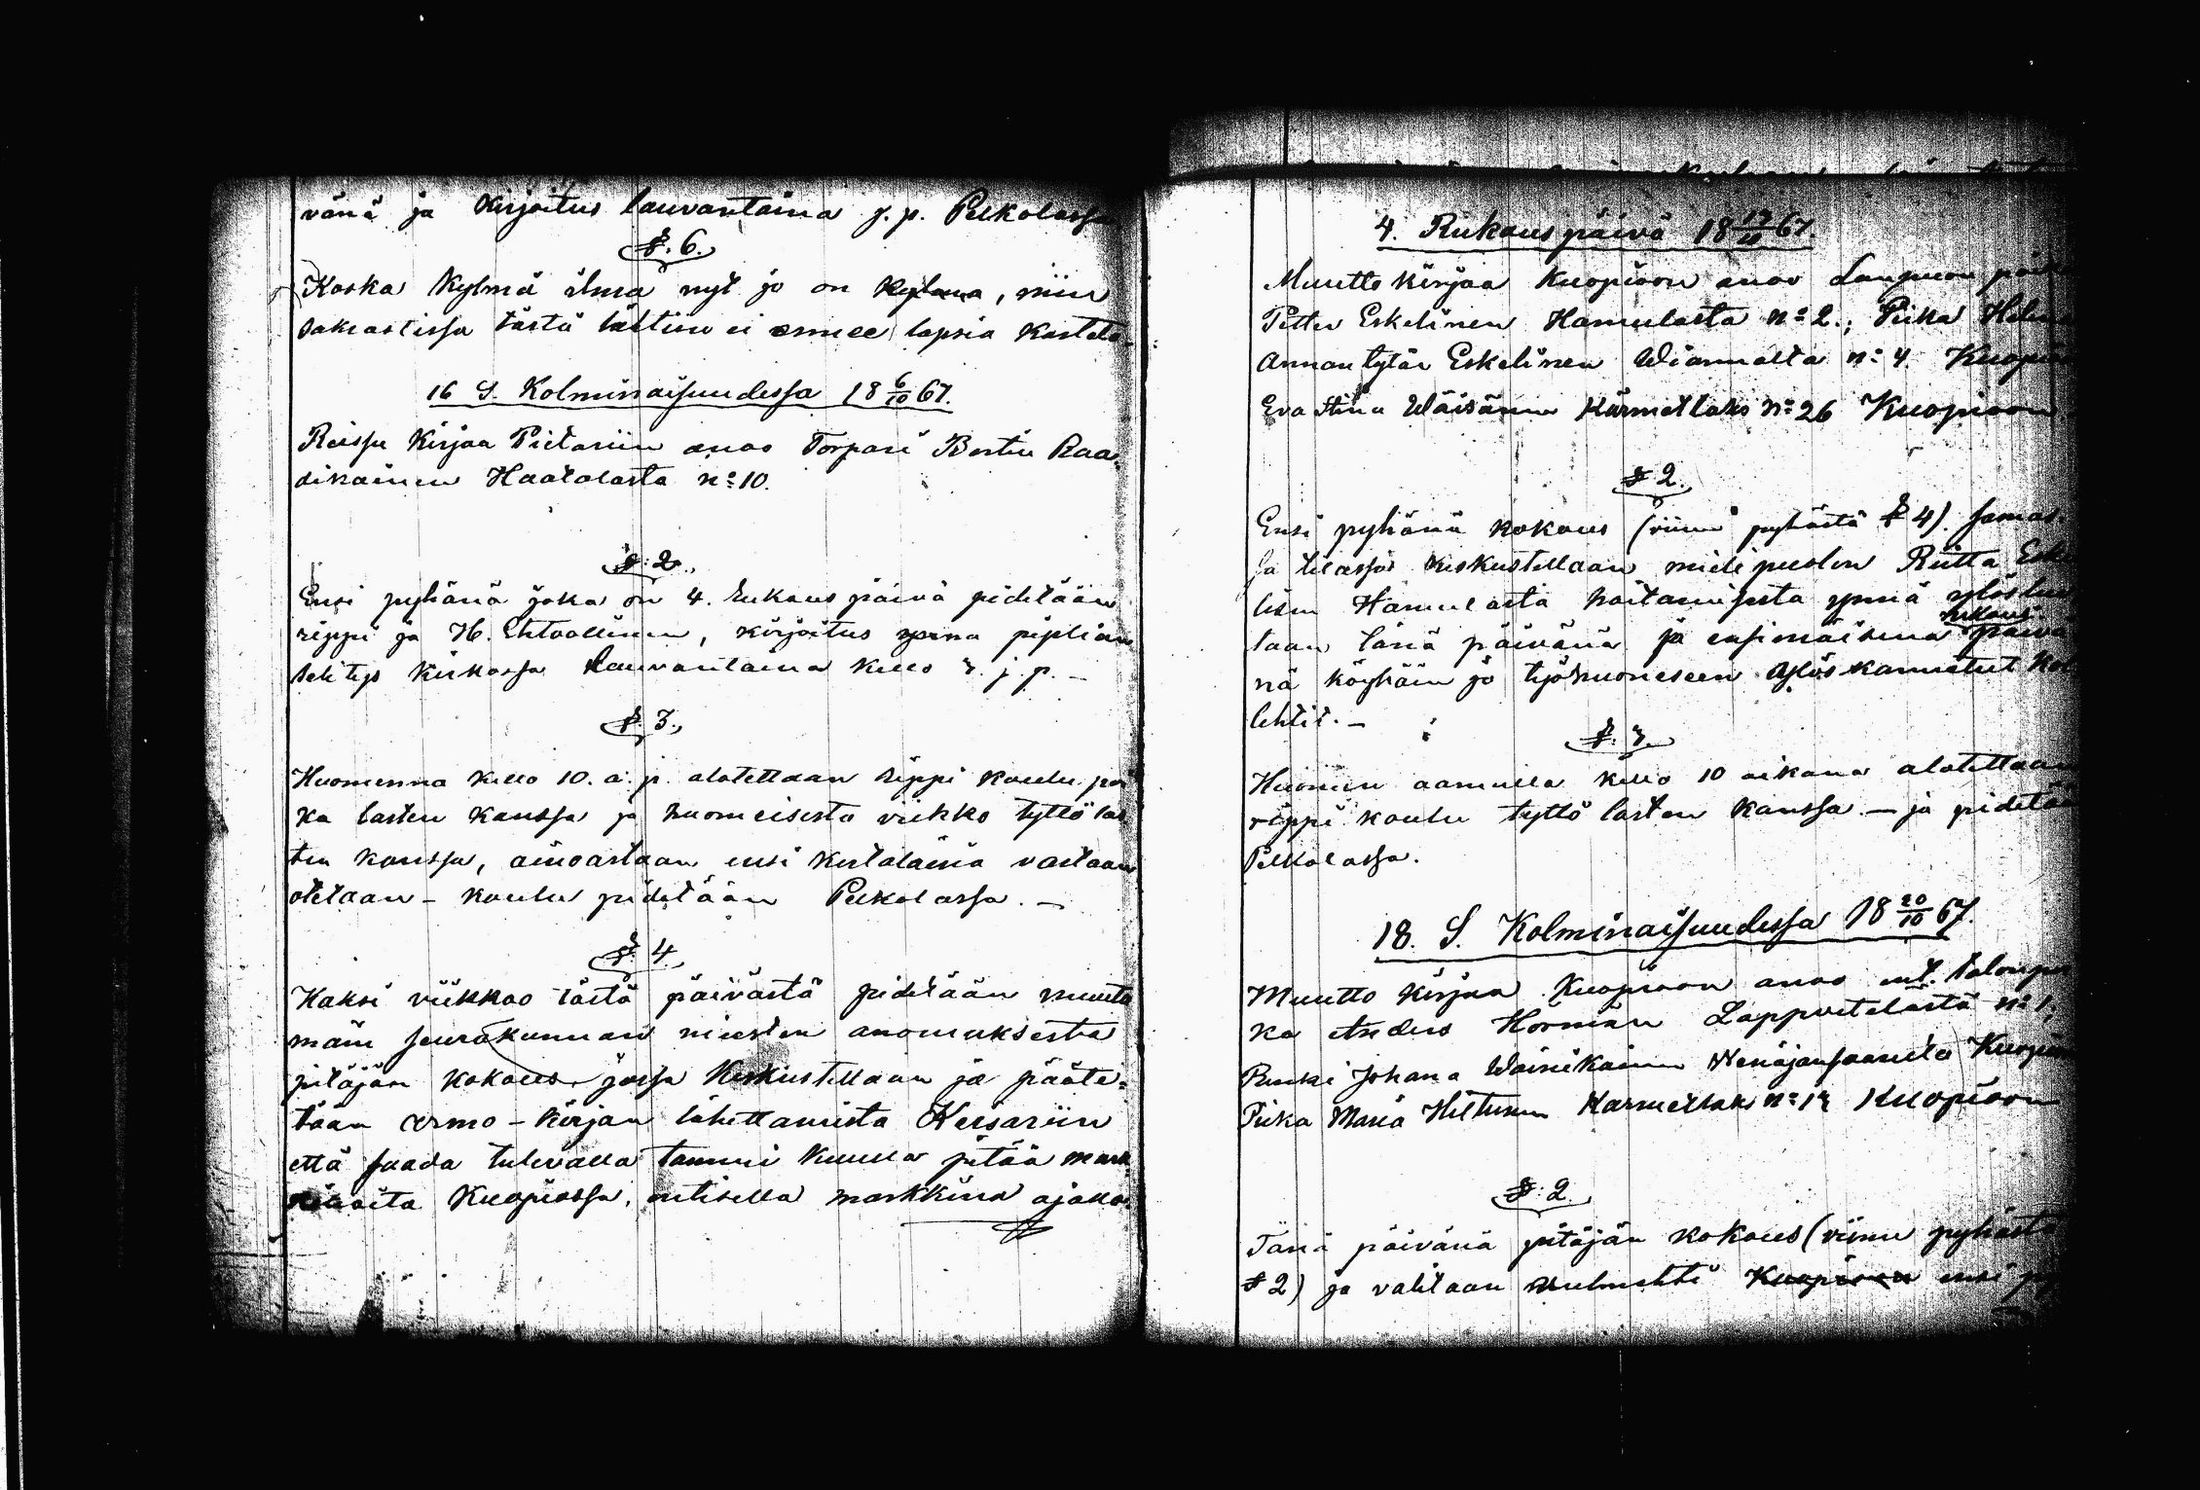 vänä ja Kirjoitus lauvantaina j. p. Pelkolassa
§. 6.
Koska Kylmä ilma nyt jo on, niin
sakrastissa tästä lähtien ei ennee lapsia kasteta.
16 S. Kolminaisuudessa 18 6/10 67.
Reissu Kirjaa Pietariin anoo Torpari Bertin Raa-
dikainen Haatalasta n:o 10.
§. 2.
Ensi pyhänä joka on 4. Rukous päivä pidetään
rippi ja H. Ehtoollinen, kirjoitus ynnä piplian
selitys Kirkossa Lauvantaina kello 3. j. p. –
§. 3.
Huomenna kello 10. a. p. alotettaan rippi koulu poi
ka lasten kanssa ja huomeisesta viikko tyttö las
ten kanssa, ainoastaan ensi kertalaisia vastaan
otetaan – koulu pidetään Pelkolassa. –
§. 4
Kaksi viikkoo tästä päivästä pidetään muuta
main seurakunnan miesten anomuksesta
pitäjän kokous jossa Keskustellaan ja pääte-
tään armo-kirjan lähettämistä Keisariin
että saada tulevalla tammi kuulla pitää mark
kinoita Kuopiossa, entisellä markkina ajalla.
4. Rukous päivä 18 13/10 67.
Muutto kirjaa Kuopioon anoo
Petter Eskelinen Hamulasta n:o 2.; Piika
Annan tytär Eskelinen Wiannalta n:o 4.
Eva Stina Wäisänen Kärmetlaks n:o 26 Kuopioon
§ 2.
Ensi pyhänä kokous (viime pyhästä § 4). Samas-
sa tilassa keskustellaan mielipuolen Riitta
lisen Hamulasta hoitamisesta ynnä
taan tänä päivänä ja ensimäisenä rukous päivä
nä köyhäin ja työhuoneseen ylöskannetut
lehtit. –
§. 3.
Huomen aamulla kello 10 aikana alotettaan
rippi koulu tyttö lasten kanssa – ja pidetään
Pelkolassa.
18. S. Kolminaisuudessa 18 20/10 67.
Muutto kirjaa Kuopioon anoo
ka Anders Korman n:o 1,
Renki Johana Wainikainen
Piika Maria Hiltunen Kärmetlaks n:o 13 Kuopioon
§. 2.
Tänä päivänä pitäjän kokous (viime pyhästä
§ 2) ja valitaan Kuopioon ensi